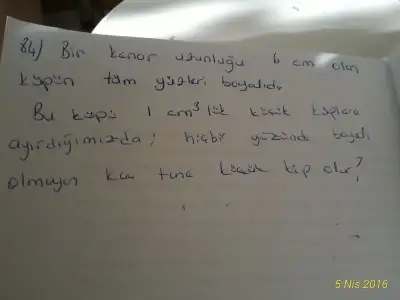 84) Bir kenar uzunluğu 6 cm olan
küpün tüm yüzleri boyalıdır
Bu küpü 1 cm³ lük küçük küplere
ayırdığımızda; hiçbir yüzünde boyalı
olmayan kaç tane küçük küp olur?
5 Nis 2016